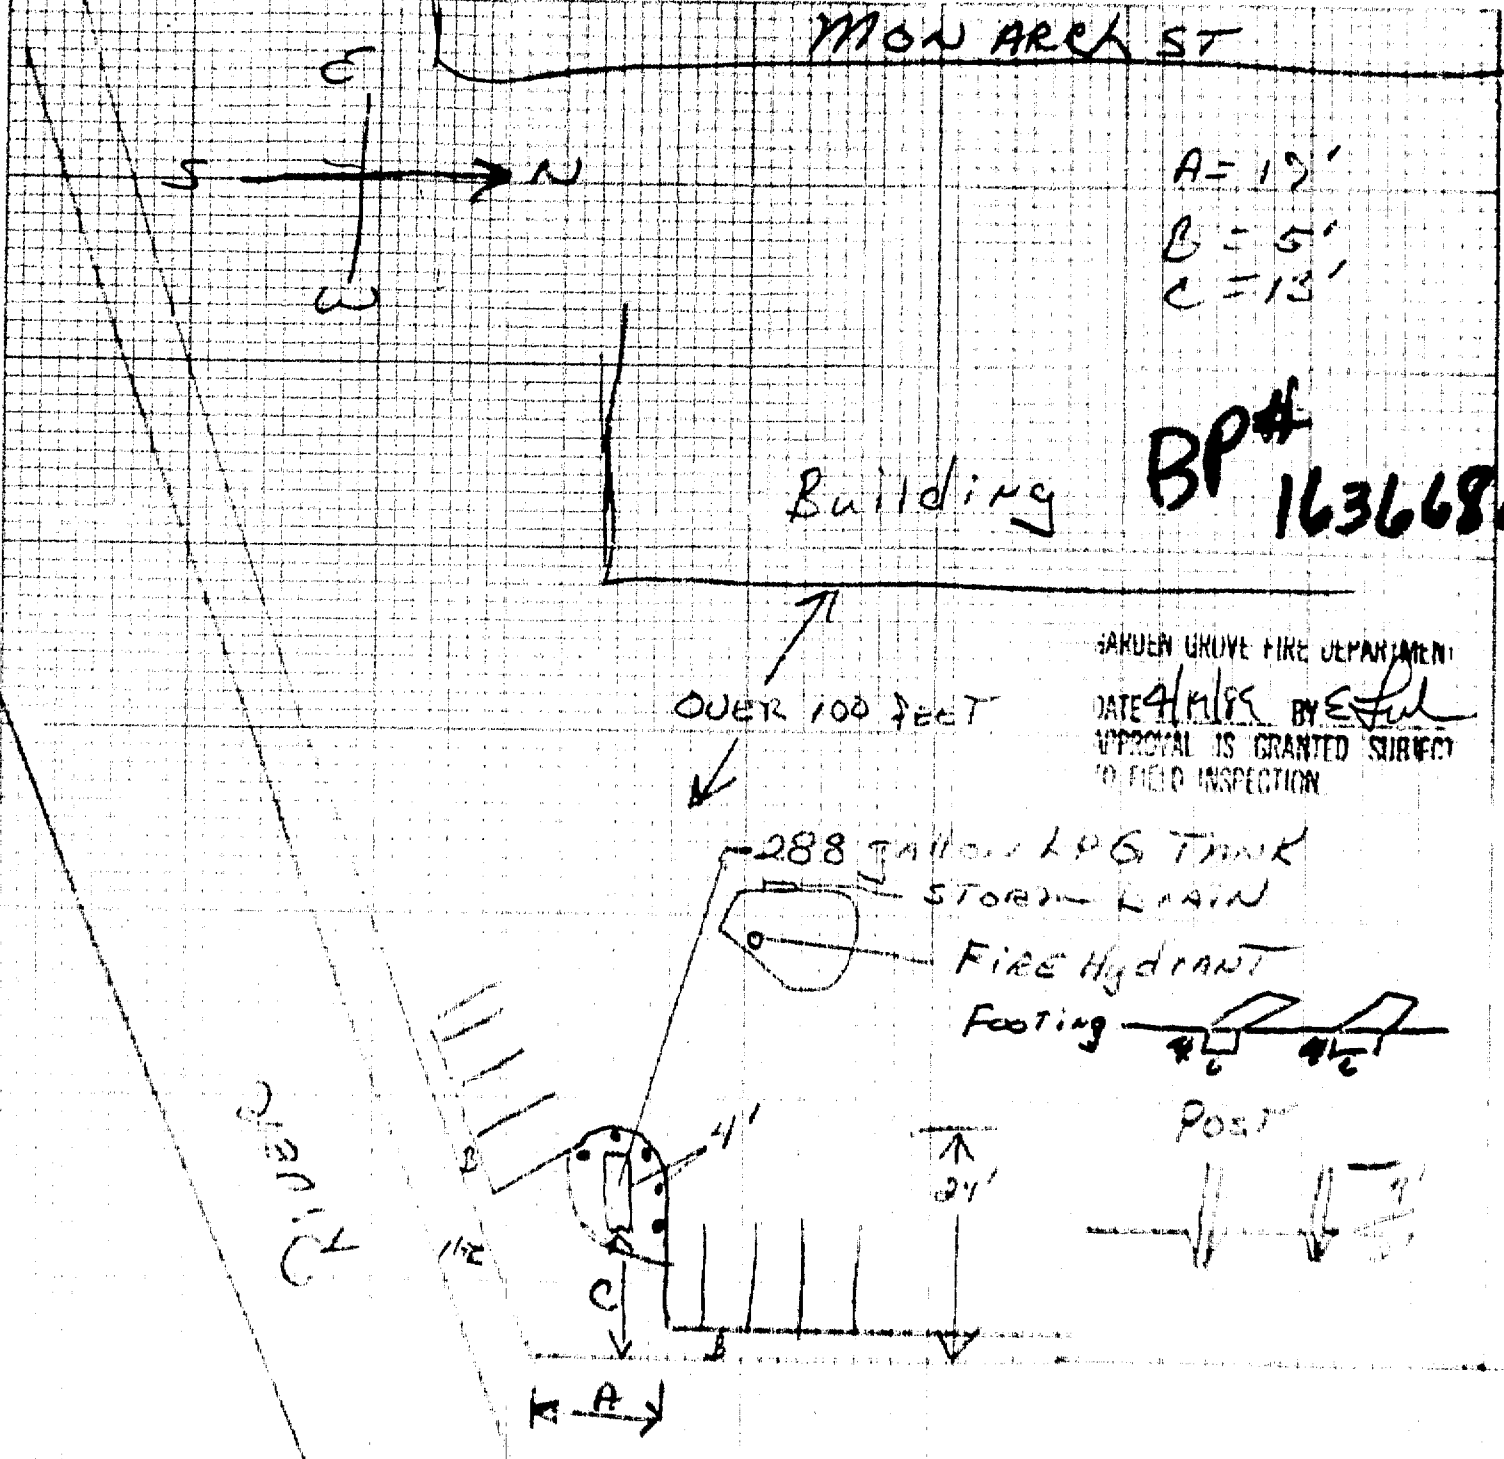 MONARCH ST
E
S N
W
B = 5'
C = 13'
Building
BP#
163668
GARDEN GROVE FIRE DEPARTMENT
DATE BY
APPROVAL IS GRANTED SUBJECT
TO FIELD INSPECTION
OVER 100 FEET
288 gallon LPG TANK
STORM DRAIN
FIRE HydrANT
FooTing
4 6 4 6
POST
4'
24'
RIVER
B
C
B
A